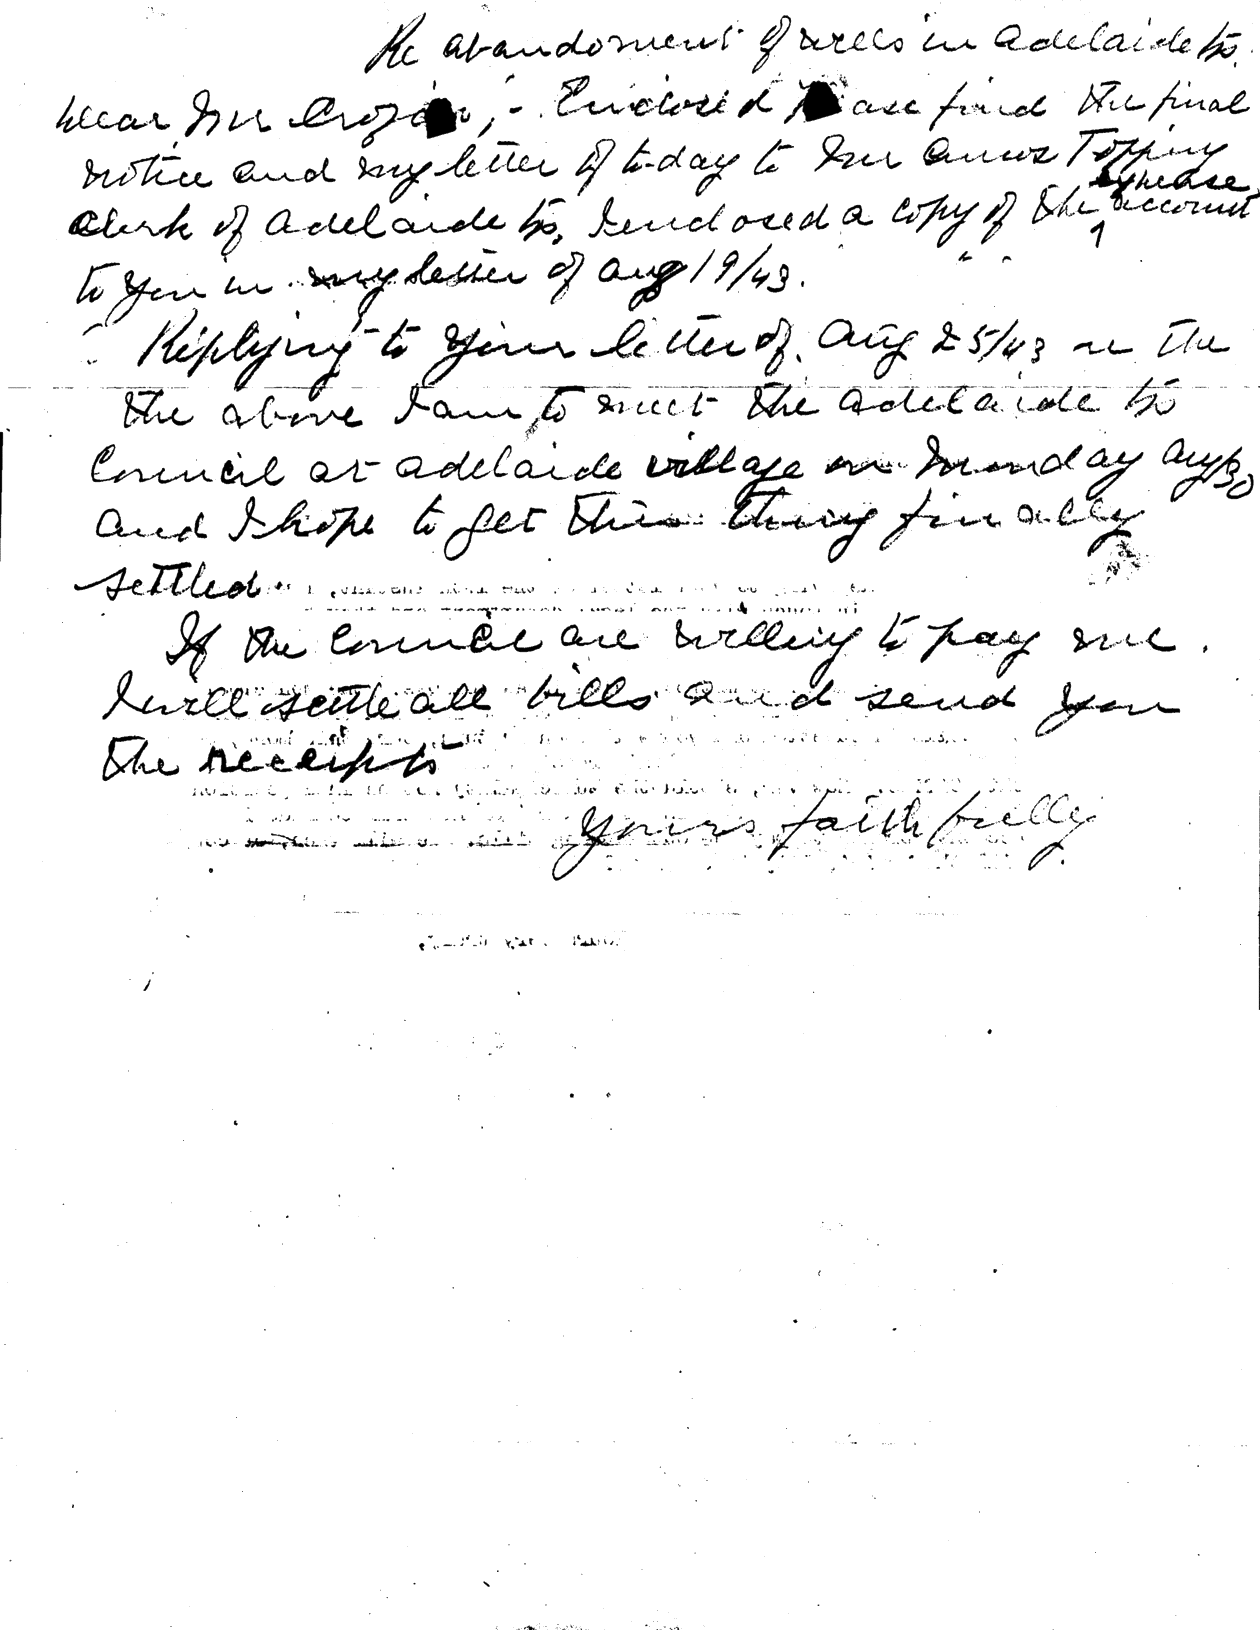 Re abandonment of wells in Adelaide tp.
Dear Mr Crozier, - Enclosed please find the final
notice and my letter of to-day to Mr Amos Topping
expense
clerk of Adelaide tp, I enclosed a copy of the account
to you in my letter of Aug 19/43.
Replying to your letter of Aug 25/43 re the
the above I am to meet the Adelaide tp
Council at Adelaide village on Monday Aug 30
and I hope to get this thing finally
settled
If the Council are willing to pay me.
I will settle all bills and send you
the receipts
Yours faithfully